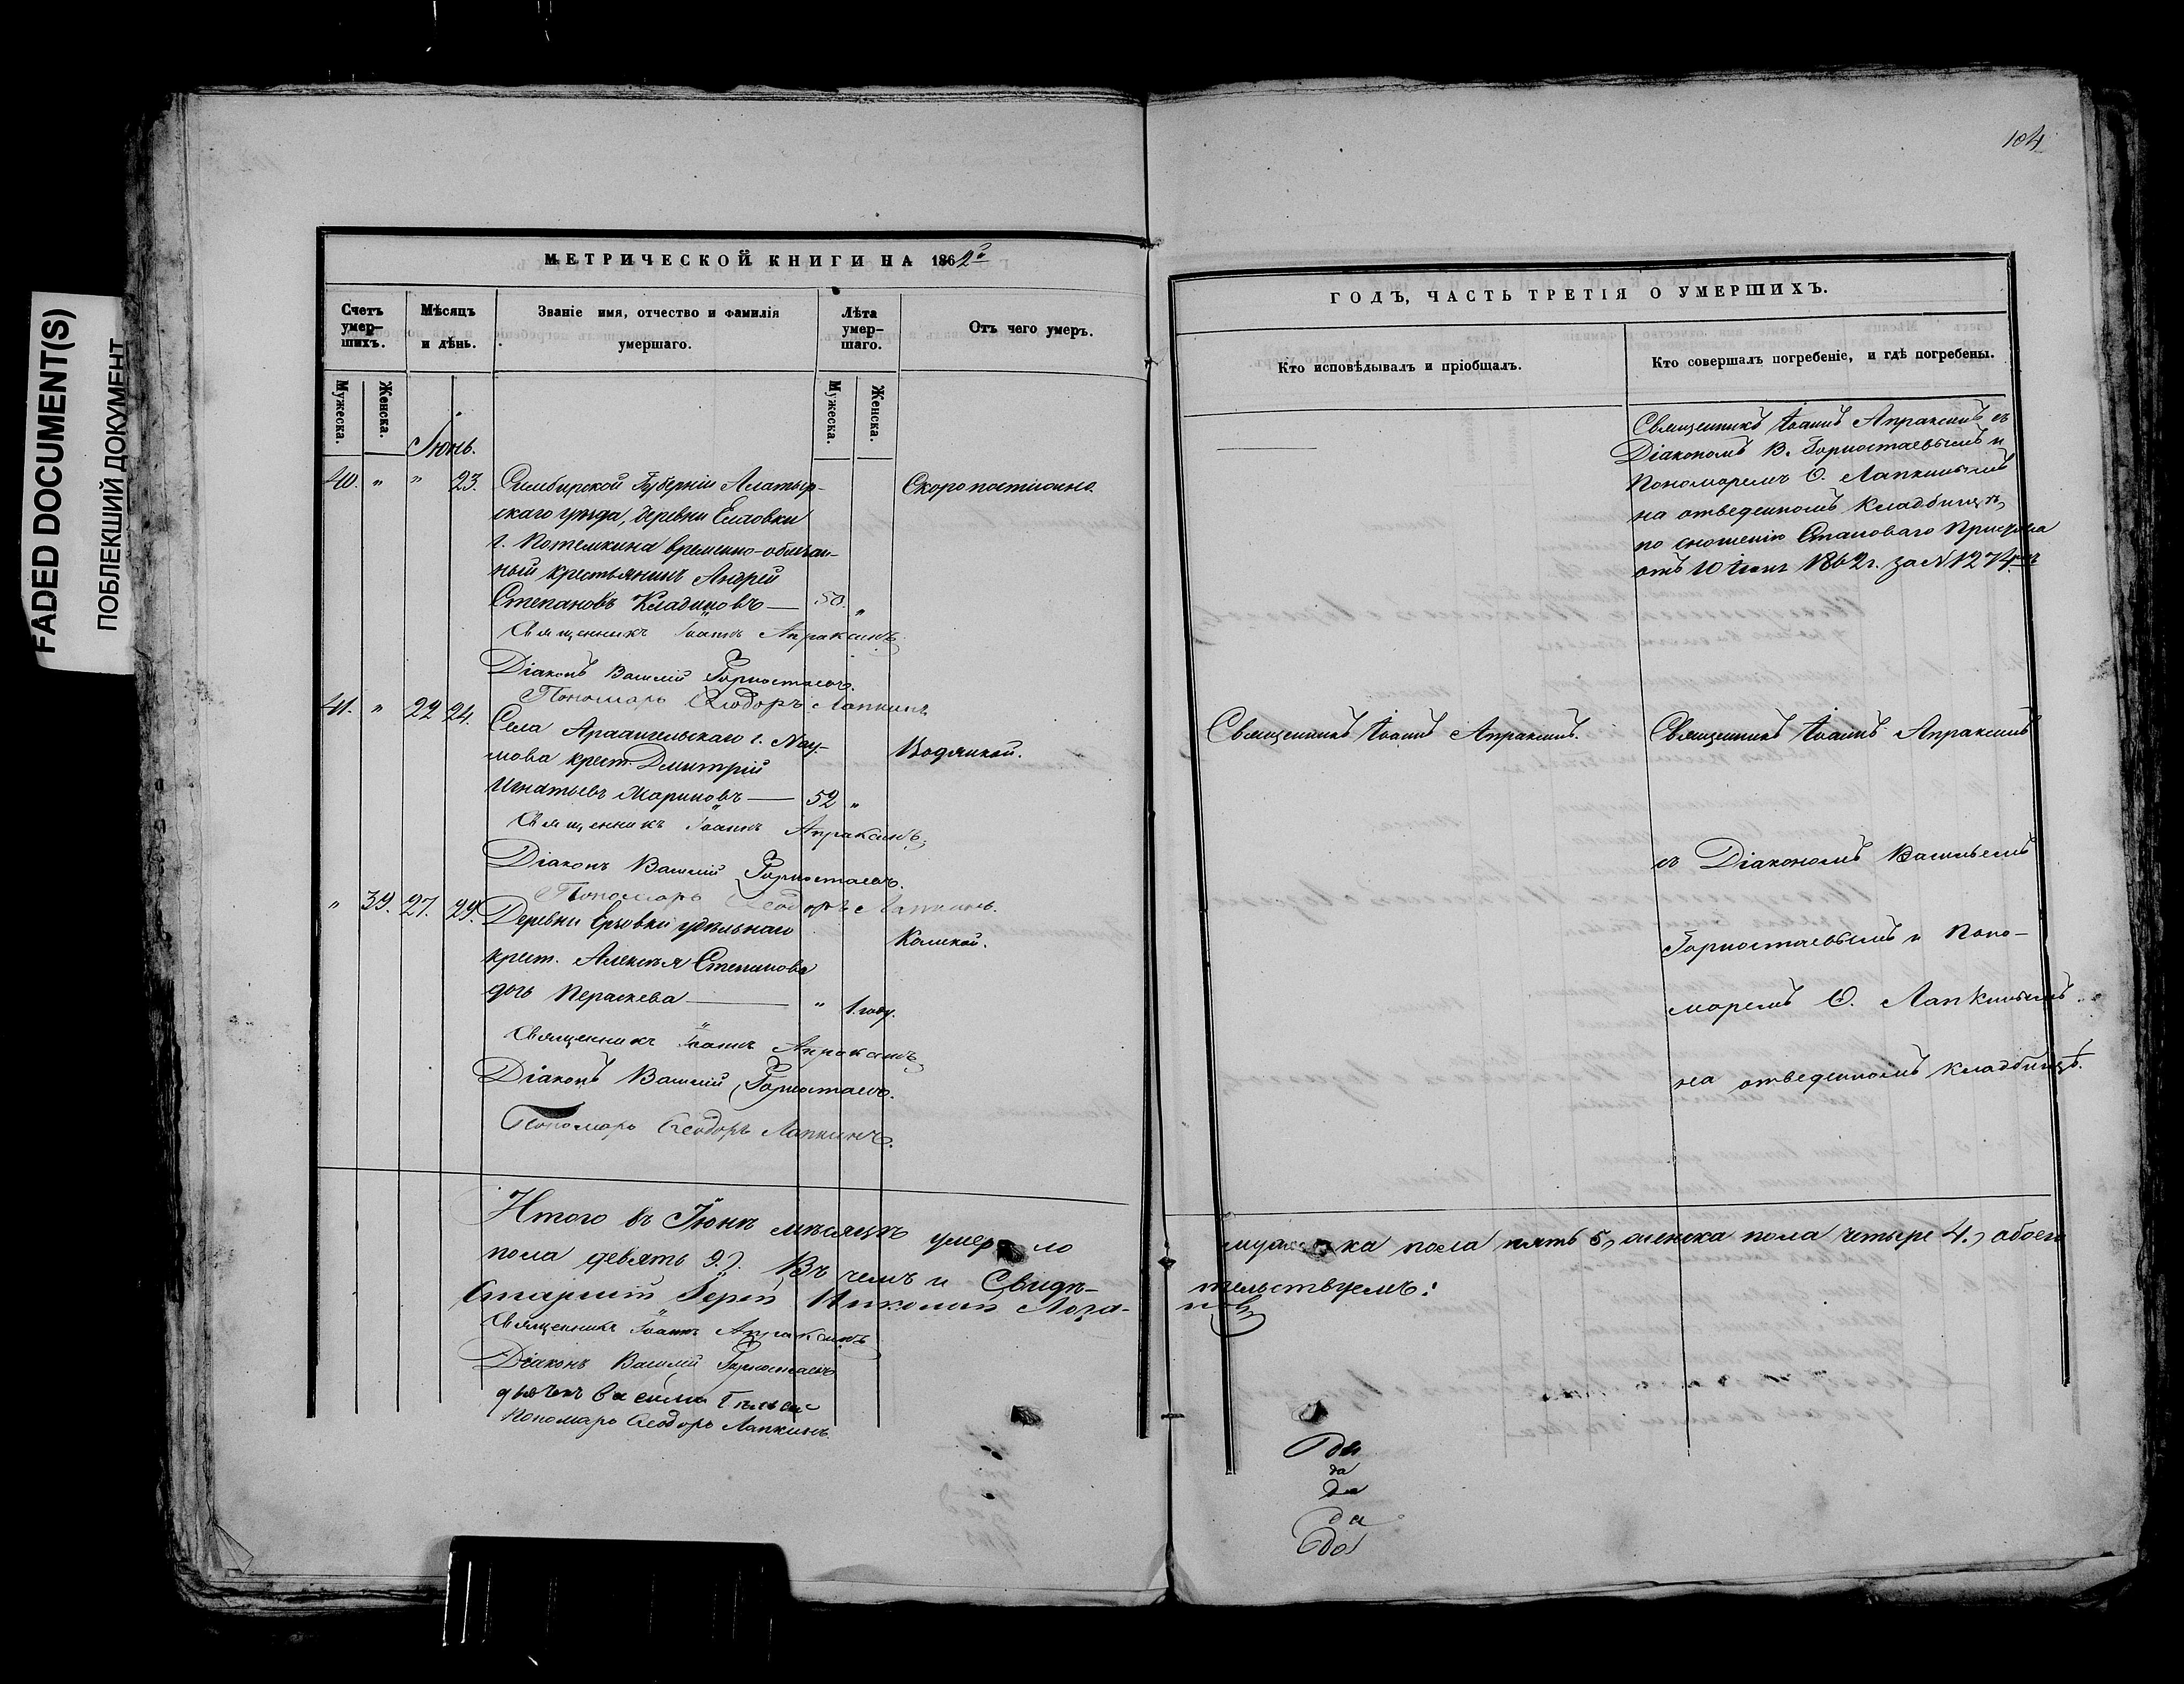 FADED DOCUMENT(S)
ПОБЛЕКШИЙ ДОКУМЕНТ
МЕТРИЧЕСКОЙ КНИГИ НА 1862го
Счетъ умер-шихъ.
Мѣсяцъ и дѣнь.
Званіе имя, отчество и фамилія умершаго.
Лѣта умер-шаго.
Отъ чего умеръ.
Мужеска.
Женска.
Мужеска.
Женска.
Іюнь.
40. " " 23. Симбирской Губерніи Алатыр-
скаго уѣзда, деревни
г. Потемкина временно-обязан-
ный крестьянинъ Андрей
Степановъ Кладиновъ — 50. "
Скоропостижно.
Священникъ Іоаннъ Апраксинъ
Діаконъ Василій Горностаевъ.
Пономарь Ѳеодоръ Лапкинъ
41. " 22 24. Села Архангельскаго г. Нау-
мова крест. Дмитрій
Игнатьевъ Мариновъ — 52 "
Водянкой.
Священникъ Іоаннъ Апраксинъ
Діаконъ Василій Горностаевъ.
Пономарь Ѳеодоръ Лапкинъ.
" 39. 27. 29. Деревни удѣльнаго
крест. Алексѣя Степанова
дочь Пераскева — " 1 году.
Священникъ Іоаннъ Апраксинъ
Діаконъ Василій Горностаевъ.
Пономарь Ѳеодоръ Лапкинъ.
Итого въ Іюнѣ мѣсяцѣ умерло
пола девять 9.). Въ чемъ и Свидѣ-
Старшій Іерей Николай
Священникъ Іоаннъ Апраксинъ
Діаконъ Василій Горностаевъ
Пономарь Ѳеодоръ Лапкинъ.
104
ГОДЪ, ЧАСТЬ ТРЕТІЯ О УМЕРШИХЪ.
Кто исповѣдывалъ и пріобщалъ.
Кто совершалъ погребеніе, и гдѣ погребены.
Священникъ Іоаннъ Апраксинъ съ
Діакономъ В. Горностаевымъ и
Пономаремъ Ѳ. Лапкинымъ
на отведенномъ кладбищѣ,
по сношенію Становаго Пристава
отъ 10 Іюня 1862 г. за № 1274мъ
Священникъ Іоаннъ Апраксинъ.
Священникъ Іоаннъ Апраксинъ
съ Діакономъ Васильемъ
Горностаевымъ и Поно-
маремъ Ѳ. Лапкинымъ
на отведенномъ кладбищѣ.
мужеска пола пять 5, женска пола четыре 4., обоего
тельствуемъ:
да
да
да